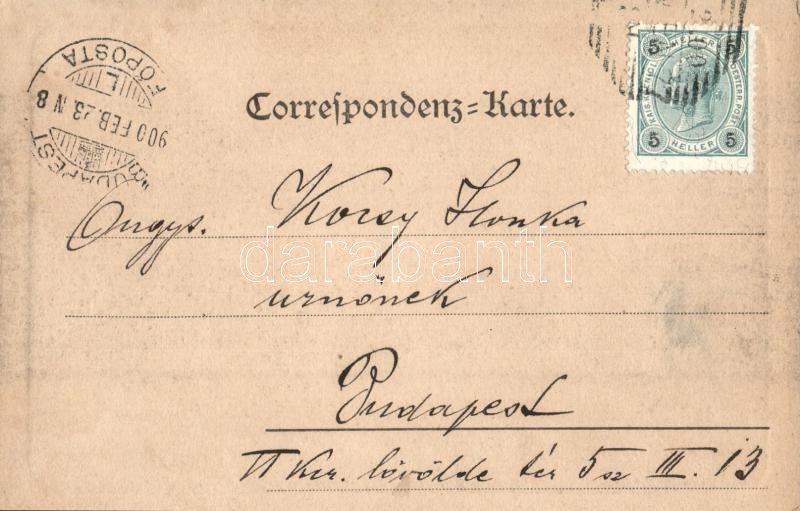 BUDAPEST
900 FEB. 23. N 8
FŐPOSTA
5 HELLER 5
KAIS. KOENIGL. OESTERR. POST.
5 HELLER 5
Correspondenz=Karte.
Kocsy Ilonka
urnőnek
darabanth
Budapest
Ker. lövölde tér 5 sz III. 13